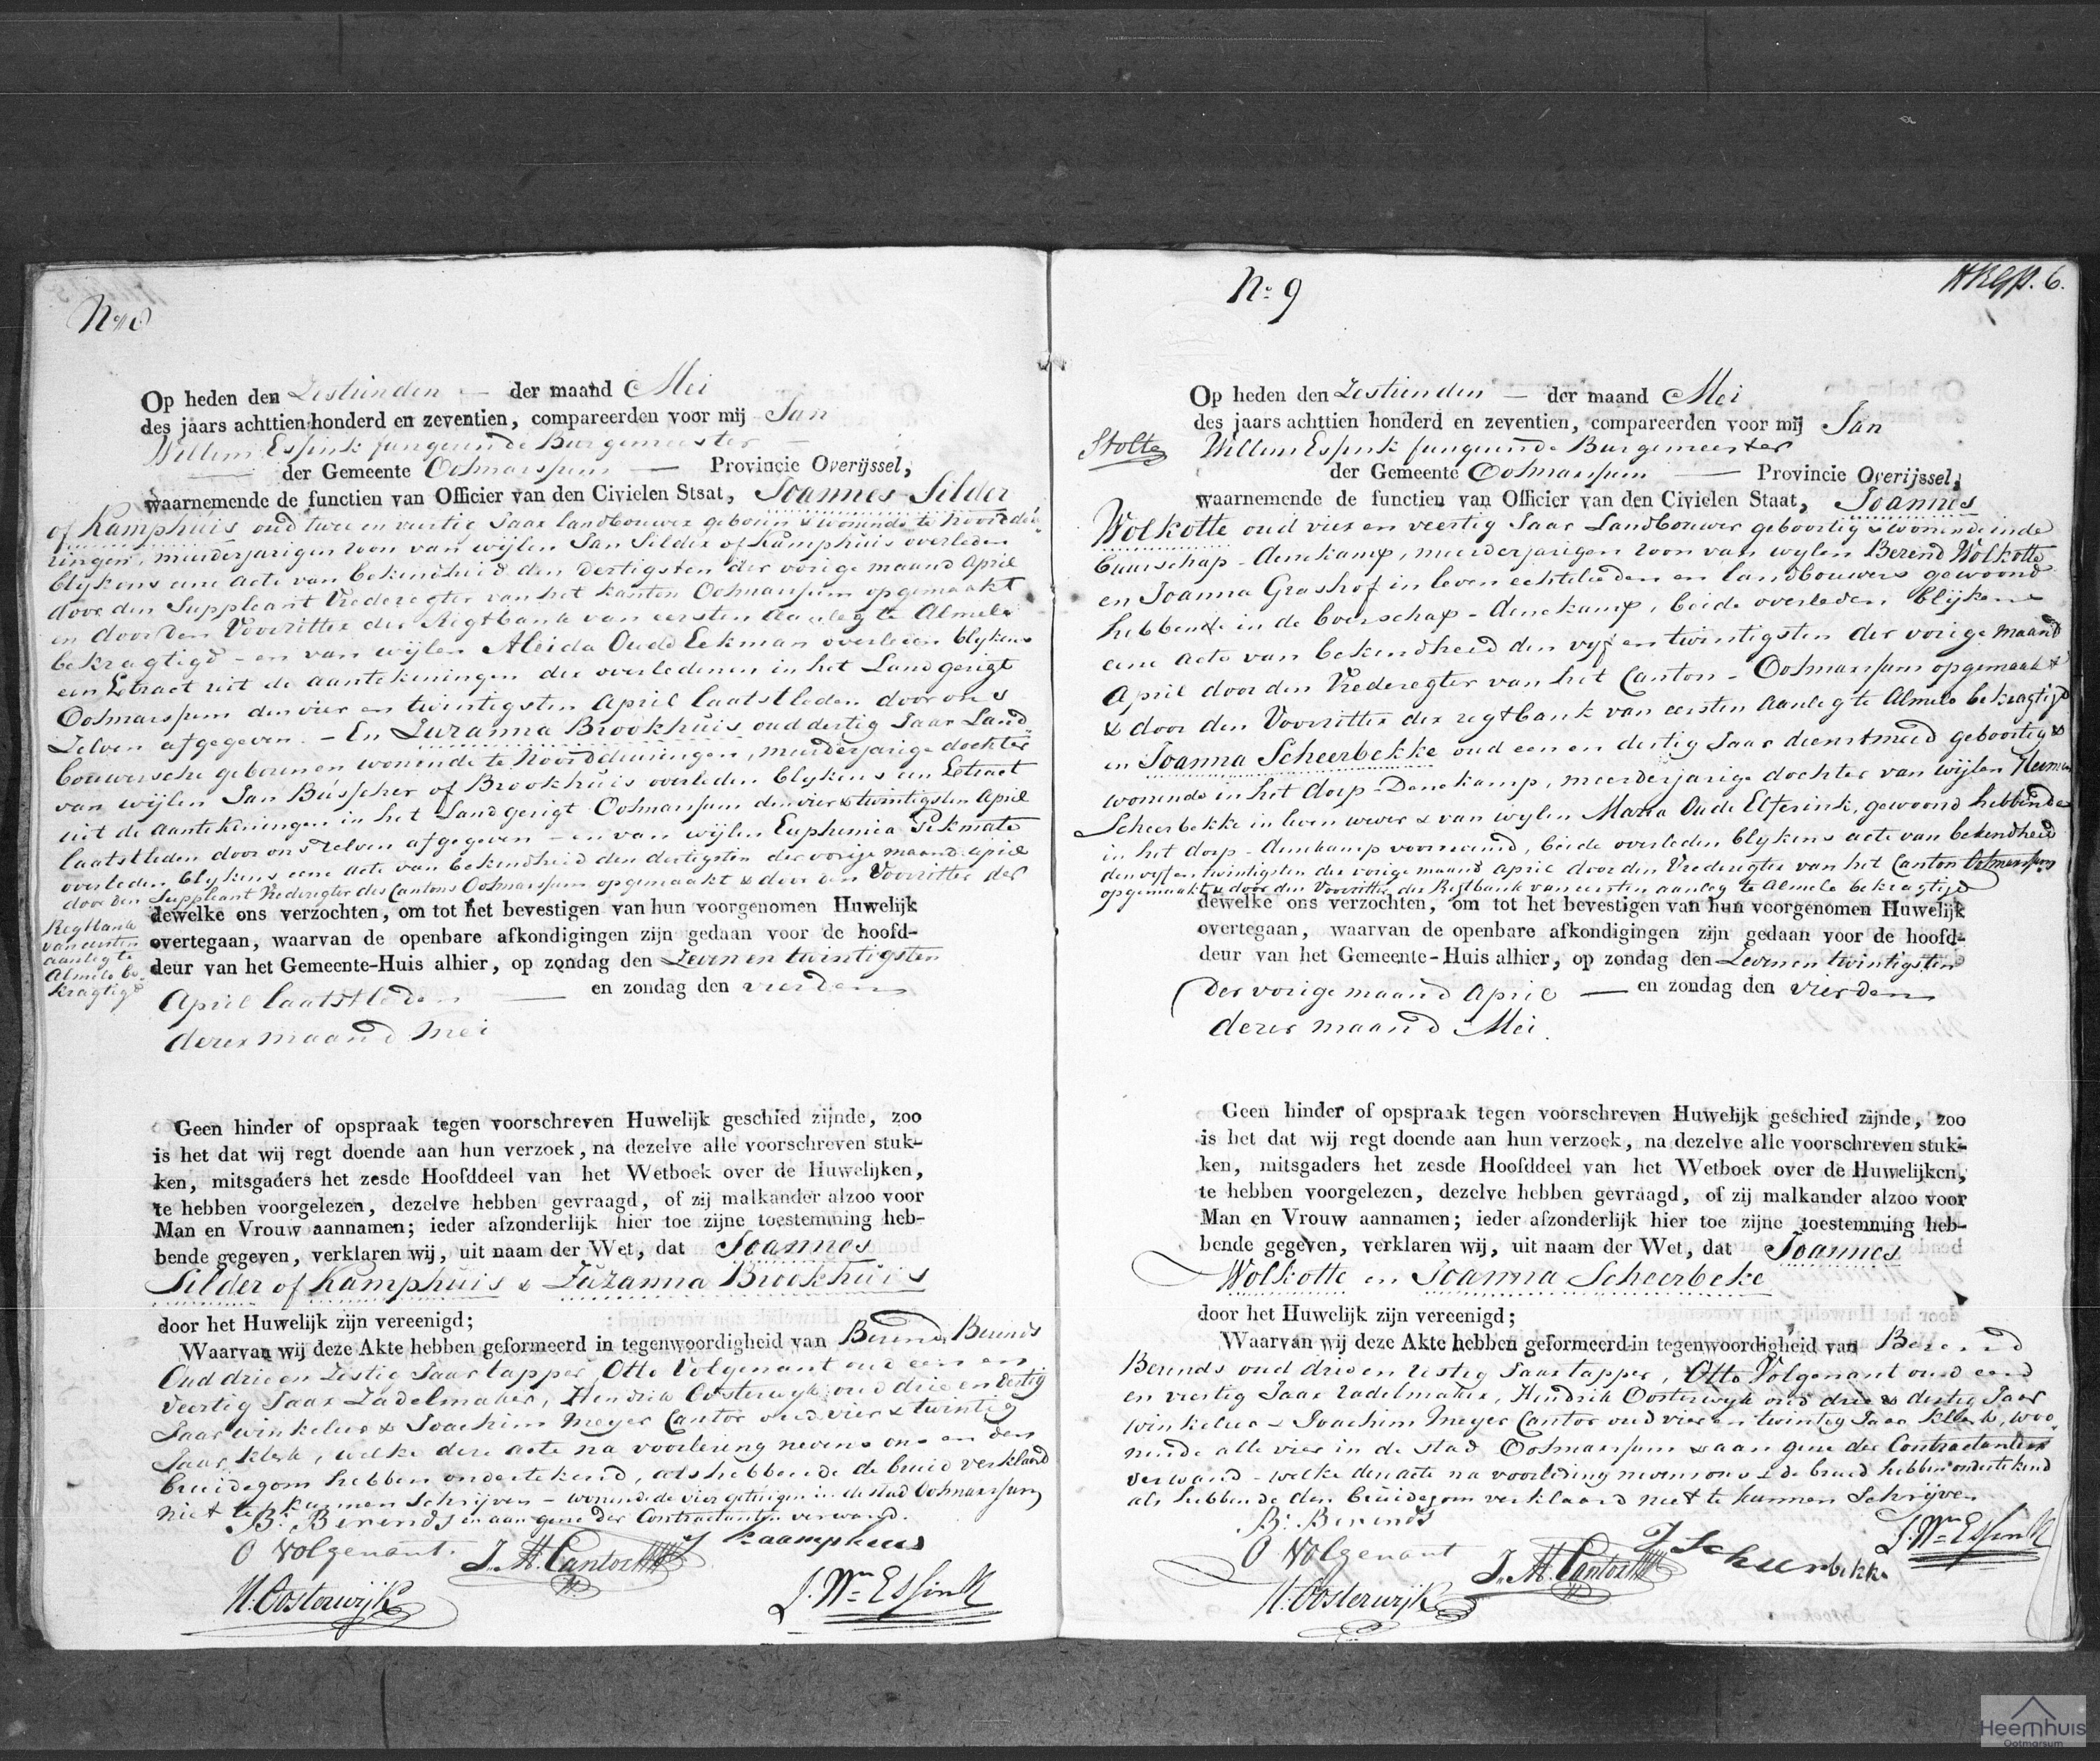 No 8
Op heden den Zestienden — der maand Mei
des jaars achttien honderd en zeventien, compareerden voor mij Jan
Willem Essink fungeerende Burgemeester
der Gemeente Ootmarssum — Provincie Overijssel,
waarnemende de functien van Officier van den Civielen Stsat, Joannes Silder
of Kamphuis oud twee en veertig Jaar landbouwer geboren & wonende te Noordde-
ningen, meerderjarigen zoon van wijlen Jan Silder of Kamphuis overleden
blijkens eene acte van bekendheid den dertigsten der vorige maand April
door den Suppleant Vrederegter van het kanton Ootmarssum opgemaakt
en door den Voorzitter der Regtbank van eersten Aanleg te Almelo
bekragtigd - en van wijlen Aleida Oude Eekman overleden blijkens
een Extract uit de aantekeningen der overledenen in het Landgerigt
Ootmarssum den vier en twintigsten April laatstleden door ons
Zelven afgegeven. - En Zuzanna Brookhuis oud dertig Jaar Land-
bouwersche geboren en wonende te Noorddeuningen, meerderjarige dochter
van wijlen Jan Busscher of Brookhuis overleden blijkens een Extract
uit de aantekeningen in het Landgerigt Ootmarssum den vier & twintigsten April
laatstleden door ons zelven afgegeven - en van wijlen Euphemia Pekmate
overleden blijkens eene acte van bekendheid den dertigsten der vorige maand April
door den Suppleant Vrederegter des Cantons Ootmarssum opgemaakt & door den Voorzitter der
Regtbank
van eersten
aanleg te
Almelo be-
kragtigd
dewelke ons verzochten, om tot het bevestigen van hun voorgenomen Huwelijk
overtegaan, waarvan de openbare afkondigingen zijn gedaan voor de hoofd-
deur van het Gemeente-Huis alhier, op zondag den Zeven en twintigsten
April laatstleden — en zondag den vierden
dezer maand Mei
Geen hinder of opspraak tegen voorschreven Huwelijk geschied zijnde, zoo
is het dat wij regt doende aan hun verzoek, na dezelve alle voorschreven stuk-
ken, mitsgaders het zesde Hoofddeel van het Wetboek over de Huwelijken,
te hebben voorgelezen, dezelve hebben gevraagd, of zij malkander alzoo voor
Man en Vrouw aannamen; ieder afzonderlijk hier toe zijne toestemming heb-
bende gegeven, verklaren wij, uit naam der Wet, dat Joannes
Silder of Kamphuis & Zuzanna Brookhuis
door het Huwelijk zijn vereenigd;
Waarvan wij deze Akte hebben geformeerd in tegenwoordigheid van Berend Berends
Oud drie en Zestig Jaar tapper, Otto Volgenant oud een en
Veertig Jaar Zadelmaker, Hendrik Oosterwijk oud drie en dertig
Jaar winkelier & Joachim Meyer Cantor oud vier & twintig
Jaar klerk, welke deze acte na voorlezing nevens ons en den
bruidegom hebben ondertekend, als hebbende de bruid verklaard
niet te kunnen Schrijven - wonende de vier getuigen in de stad Ootmarssum
en aan gene der Contractanten verwand.
Bd. Berends
O Volgenant.
J. M. Cantor
J kaamphuis
H. Oosterwijk
J. Wm Essink
No 9
6.
Stolte
Op heden den Zestienden — der maand Mei
des jaars achttien honderd en zeventien, compareerden voor mij Jan
Willem Essink fungeerende Burgemeester
der Gemeente Ootmarssum — Provincie Overijssel,
waarnemende de functien van Officier van den Civielen Staat, Joannes
Wolkotte oud vier en veertig Jaar Landbouwer geboortig & wonende in de
buurschap - denekamp, meerderjarigen zoon van wylen Berend Wolkotte
en Joanna Grashof in leven echtelieden en landbouwers gewoond
hebbende in de boerschap - denekamp, beide overleden blijkens
eene acte van bekendheid den vyf en twintigsten der vorige maand
April door den Vrederegter van het Canton - Ootmarssum opgemaakt
& door den Voorzitter der regtbank van eersten aanleg te Almelo bekragtigd
en Joanna Scheerbekke oud een en dertig Jaar dienstmeid geboortig &
wonende in het dorp - Denekamp, meerderjarige dochter van wijlen Herman
Scheerbekke in leven wever & van wylen Maria Oude Elferink, gewoond hebbende
in het dorp - denekamp voornoemd, beide overleden blykens acte van bekendheid
den vyf en twintigsten der vorige maand April door den Vrederegter van het Canton Ootmarssum
opgemaakt & door den Voorzitter der Regtbank van eersten aanleg te Almelo bekragtigd
dewelke ons verzochten, om tot het bevestigen van hun voorgenomen Huwelijk
overtegaan, waarvan de openbare afkondigingen zijn gedaan voor de hoofd-
deur van het Gemeente-Huis alhier, op zondag den Zeven en twintigsten
Der vorige maand April — en zondag den vierden
dezer maand Mei.
Geen hinder of opspraak tegen voorschreven Huwelijk geschied zijnde, zoo
is het dat wij regt doende aan hun verzoek, na dezelve alle voorschreven stuk-
ken, mitsgaders het zesde Hoofddeel van het Wetboek over de Huwelijken,
te hebben voorgelezen, dezelve hebben gevraagd, of zij malkander alzoo voor
Man en Vrouw aannamen; ieder afzonderlijk hier toe zijne toestemming heb-
bende gegeven, verklaren wij, uit naam der Wet, dat Joannes
Wolkotte en Joanna Scheerbeke
door het Huwelijk zijn vereenigd;
Waarvan wij deze Akte hebben geformeerd in tegenwoordigheid van Berend
Berends oud drie en zestig Jaar tapper, Otto Volgenant oud een
en viertig Jaar zadelmaker, Hendrik Oosterwyk oud drie & dertig Jaar
winkelier & Joachim Meyer Cantor oud vier en twintig Jaar klerk, woo-
nende alle vier in de stad Ootmarssum & aan gene der Contractanten
verwand - welke deze acte na voorlezing nevens ons & de bruid hebben ondertekend
als hebbende den bruidegom verklaard niet te kunnen Schrijven
Bd. Berends
O Volgenant
J. M. Cantor
J Schuurbekke
J. Wm Essink
H. Oosterwijk
Heemhuis
Ootmarsum